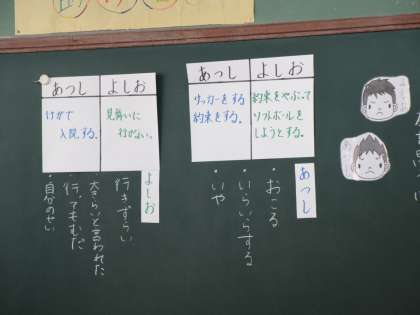 よしお
あっし
約束をやぶって
ソフトボールを
しようとする。
サッカーをする
約束をする。
あっし
・おこる
・いらいらする
・いや
よしお
あっし
見舞いに
行かない。
けがで
入院する。
よしお
行きずらい
大きらいと言われた
・行ってもむだ
・自分のせい